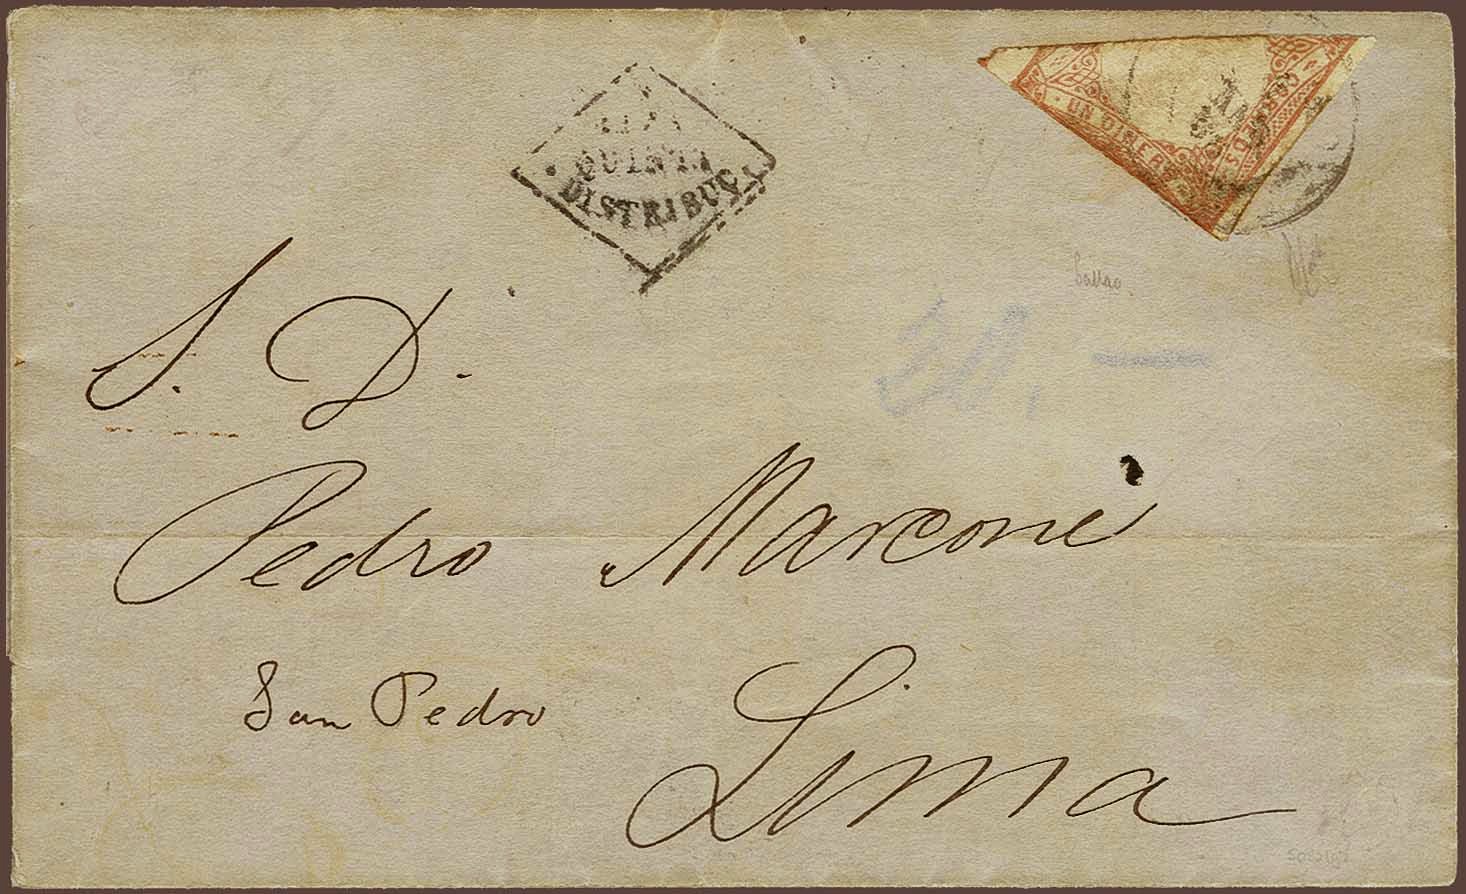 QUINTA
DISTRIBUC
UN DINERO
Callao
S. D.
Pedro Marconi
San Pedro
Lima